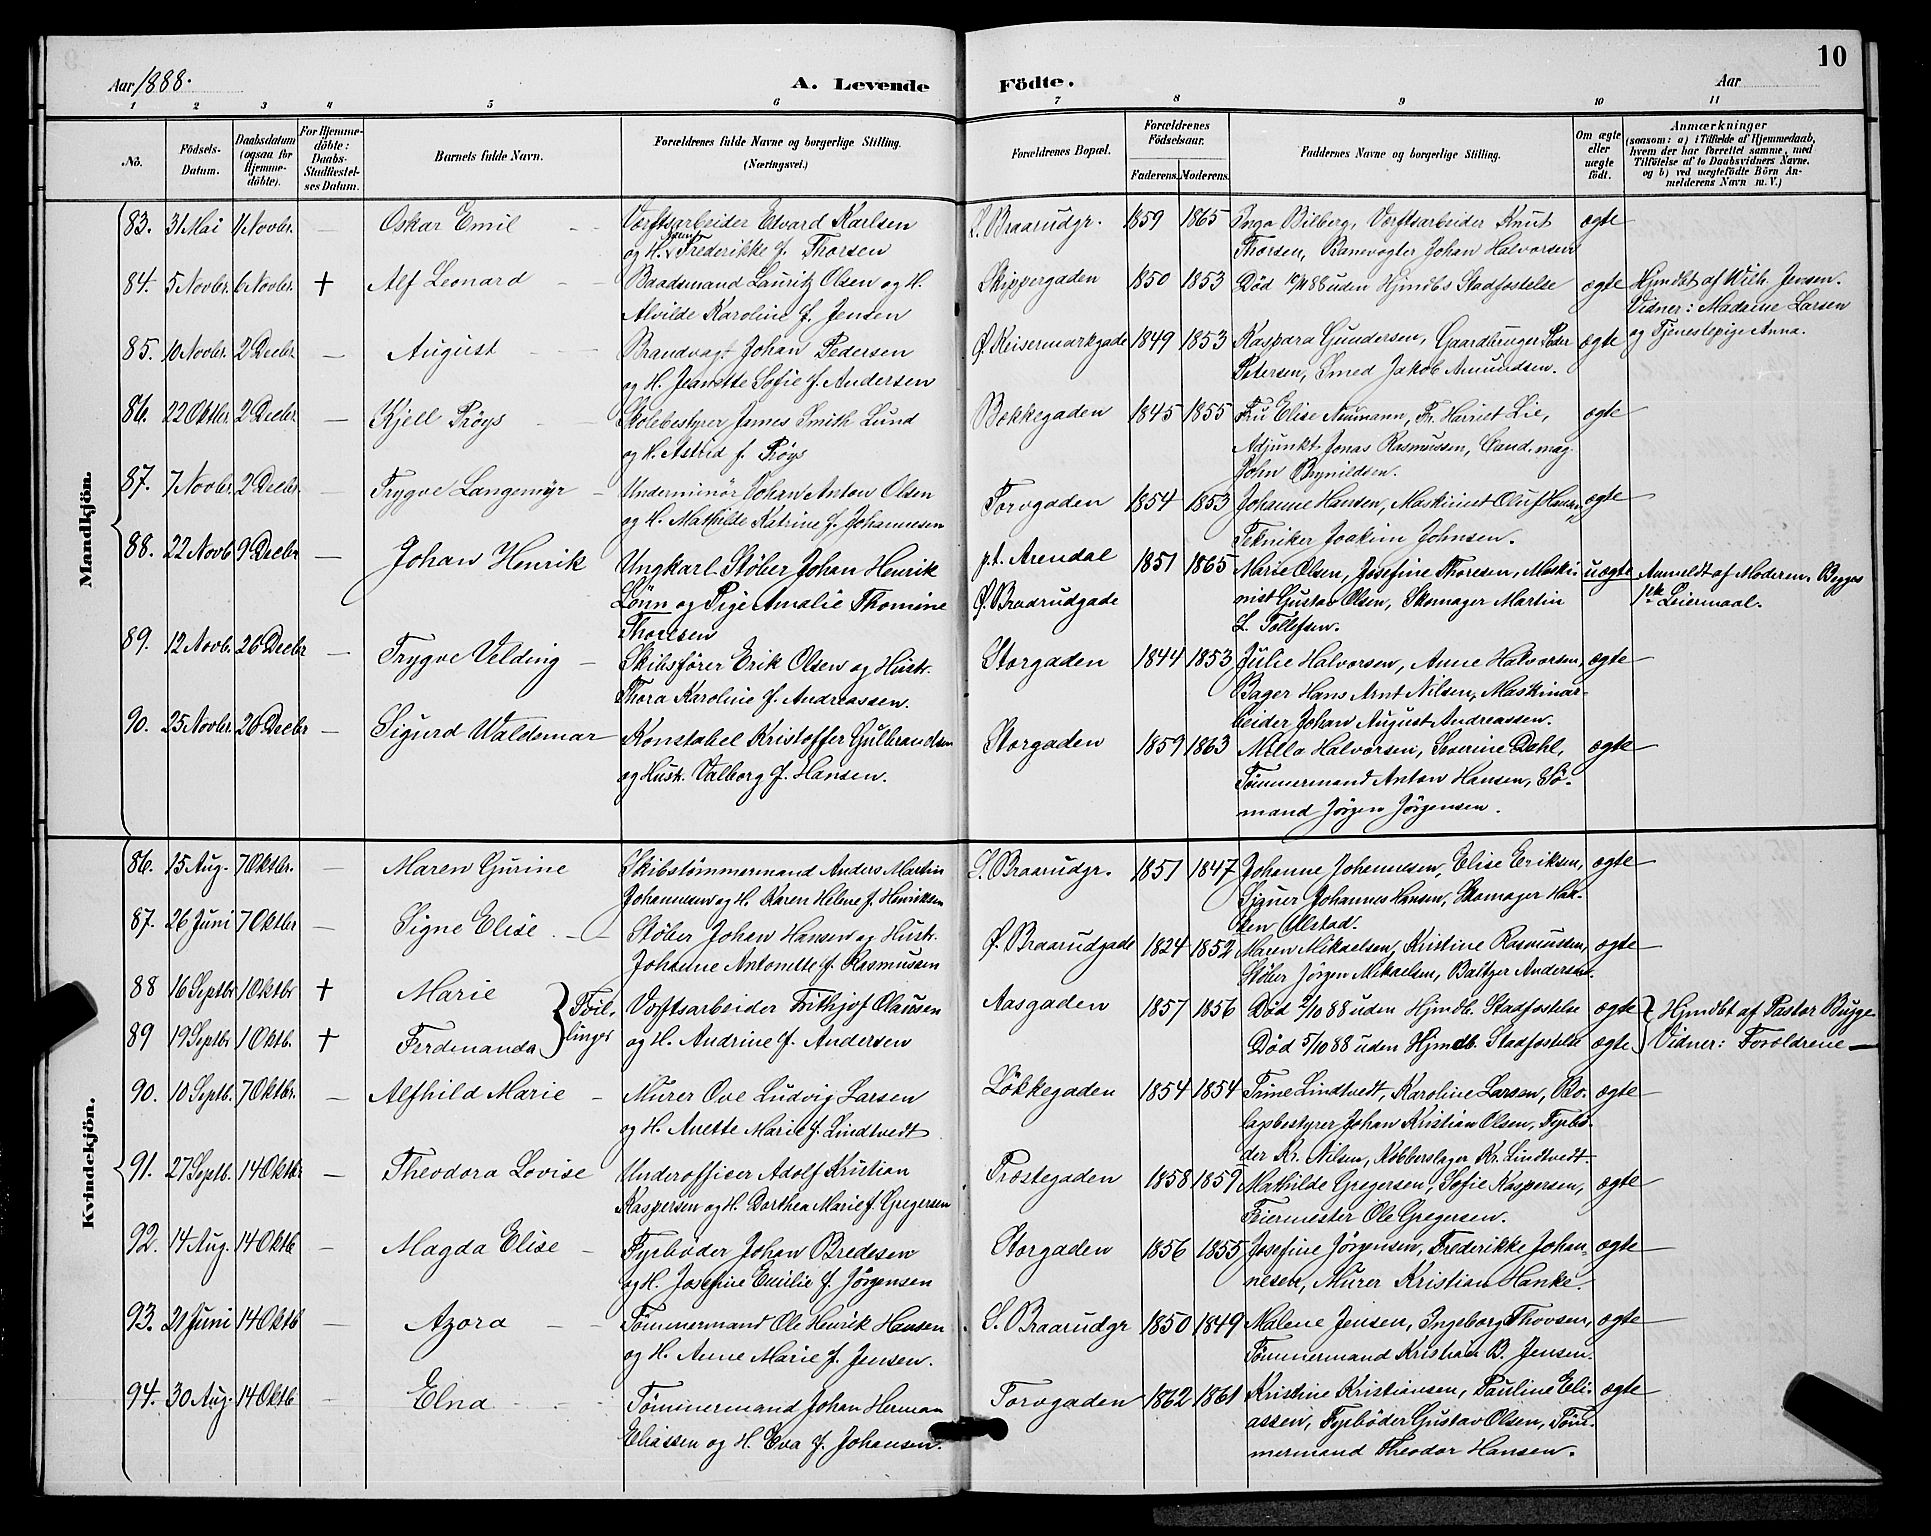 10
Aar 1888.
A. Levende Födte.
Aar
1 2 3 4 5 6 7 8 9 10 11
No.
Födsels-Datum.
Daabsdatum (ogsaa for Hjemme-döbte).
For Hjemme-döbte: Daabs-Stadfæstel-ses Datum.
Barnets fulde Navn.
Forældrenes fulde Navne og borgerlige Stilling. (Næringsvei.)
Forældrenes Bopæl.
Forældrenes Födselsaar.
Faderens. Moderens.
Faddernes Navne og borgerlige Stilling.
Om ægte eller uægte født.
Anmærkninger
(saasom: a) i Tilfælde af Hjemmedaab,
hvem der har forrettet samme, med
Tilföielse af to Daabsvidners Navne,
og b) ved uægtefödte Börn An-
melderens Navn m. V.)
Mandkjön.
83. 31 Mai 11 Novbr. — Oskar Emil Værftsarbeider Edvard Karlsen S. Braarudgr. 1859 1865 Inga Bilberg, Værftsarbeider Knut ægte
og H. Frederikke f. Thorsen Thorsen, Banevogter Johan Halvorsen
84. 5 Novbr. 6 Novbr. + Alf Leonard Baadsmand Lauritz Olsen og H. Skippergaden 1850 1853 Død 88 uden Hjmdbs Stadfæstelse ægte Hjmdbt af Wilh. Jensen.
Alvilde Karoline f. Jensen Vidner: Madame Larsen
og Tjenestepige Anna.
85. 10 Novbr. 2 Decbr — August Brandvagt Johan Pedersen Ø. Keisermarkgade 1849 1853 Kaspara Gundersen, Gaardbruger Peder ægte
og H. Jeanette Sofie f. Andersen Petersen, Smed Jakob Amundsen.
86. 22 Oktbr. 2 Decbr — Kjell Prøys Skolebestyrer James Smith Lund Bakkegaden 1845 1855 Fru Elise Naumann, Fr. Harriet Lie, ægte
og H. Astrid f. Prøys Adjunkt Jonas Rasmussen, Cand. mag
John Brynildsen.
87. 7 Novbr. 2 Decbr. — Trygve Langemyr Underminör Johan Anton Olsen Torvgaden 1854 1853 Johanne Hansen, Maskinist Oluf Hansen, ægte
og H. Mathilde Katrine f. Johannesen Tekniker Joakim Johnsen.
88. 22 Novb 9 Decbr — Johan Henrik Ungkarl. Støber Johan Henrik p.t. Arendal 1851 1865 Marie Olsen, Josefine Thoresen, Maski- uægte Anmeldt af Moderen. Begges
Lönn og Pige Amalie Thomine Ø. Braarudgade nist Gustav Olsen, Skomager Martin 1ste Leiermaal.
Thoresen L. Tollefsen.
89. 12 Novb. 26 Decbr — Trygve Velding Skibsfører Erik Olsen og Hust. Storgaden 1844 1853 Julie Halvorsen, Anne Halvorsen, ægte
Thora Karoline f. Andreassen. Bager Hans Arnt Nilsen, Maskinar-
beider Johan August Andreassen.
90. 25 Novbr. 26 Decbr — Sigurd Waldemar Konstabel Kristoffer Gulbrandsen Storgaden 1859 1863 Milla Halvorsen, Severine Dahl, ægte
og Hust. Valborg f. Hansen. Tømmermand Anton Hansen, Sø-
mand Jørgen Jörgensen.
Kvindekjön.
86. 15 Aug. 7 Oktbr. — Maren Gurine Skibstömmermand Anders Martin S. Braarudgr. 1851 1847 Johanne Johannesen, Elise Eriksen, ægte
Johannesen og H. Karen Helene f. Henriksen Signer Johannes Hansen, Skomager Haa-
ken Ulstad.
87. 26 Juni 7 Oktbr — Signe Elise Støber Johan Hansen og Hust. Ø. Braarudgade 1824 1852 Maren Mikaelsen, Kristine Rasmussen, ægte
Johanne Antonette f. Rasmussen Støber Jørgen Mikaelsen, Baltzer Andersen.
88 16 Septbr 1 Oktbr + Marie Tvil- Værftsarbeider Frithjof Olausen Aasgaden 1857 1856 Død 5/10 88 uden Hjmdb. Stadfæstelse ægte Hjmdbt af Pastor Bugge
89 19 Septbr 1 Oktb. + Ferdinanda linger og H. Andrine f. Andersen Død 5/10 88 uden Hjmdb. Stadfæstelse ægte Vidner: Forældrene —
90. 10 Septb. 7 Oktbr. — Alfhild Marie Murer Ove Ludvig Larsen Løkkegaden 1854 1854 Tine Lindtvedt, Karoline Larsen, Bo- ægte
og H. Anette Marie f. Lindtvedt lagsbestyrer Johan Kristian Olsen, Fyrbö-
der Kr. Nilsen, Kobberslager Kr. Lindtvedt.
91. 27 Septb. 14 Oktbr — Theodora Lovise Underofficer Adolf Kristian Prostegaden 1858 1859 Mathilde Gregersen, Sofie Kaspersen, ægte
Kaspersen og H. Dorthea Marie f. Gregersen Feiermester Ole Gregersen.
92. 14 Aug. 14 Oktb — Magda Elise Fyrbøder Johan Bredesen Storgaden 1856 1855 Josefine Jørgensen, Frederikke Johan- ægte
og H. Josefine Emilie f. Jörgensen nesen, Murer Kristian Hanke.
93. 21 Juni 14 Oktb — Azora Tømmermand Ole Henrik Hansen S. Braarudgr 1850 1849 Malene Jensen, Ingeborg Thovsen, ægte
og H. Anne Marie f. Jensen. Tømmermand Kristian B. Jensen.
94. 30 Aug. 14 Oktb — Elna Tømmermand Johan Herman Torvgaden 1862 1861 Kristine Kristiansen, Pauline Eli- ægte
Eliassen og H. Eva f. Johansen. assen, Fyrbøder Gustav Olsen, Tøm-
mermand Theodor Hansen.